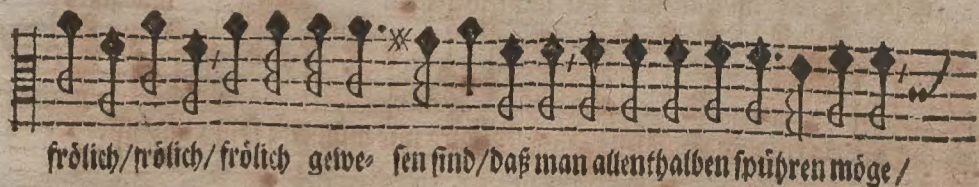 frölich/frölich/frölich gewe⸗ sen sind/daß man allenthalben spühren möge/